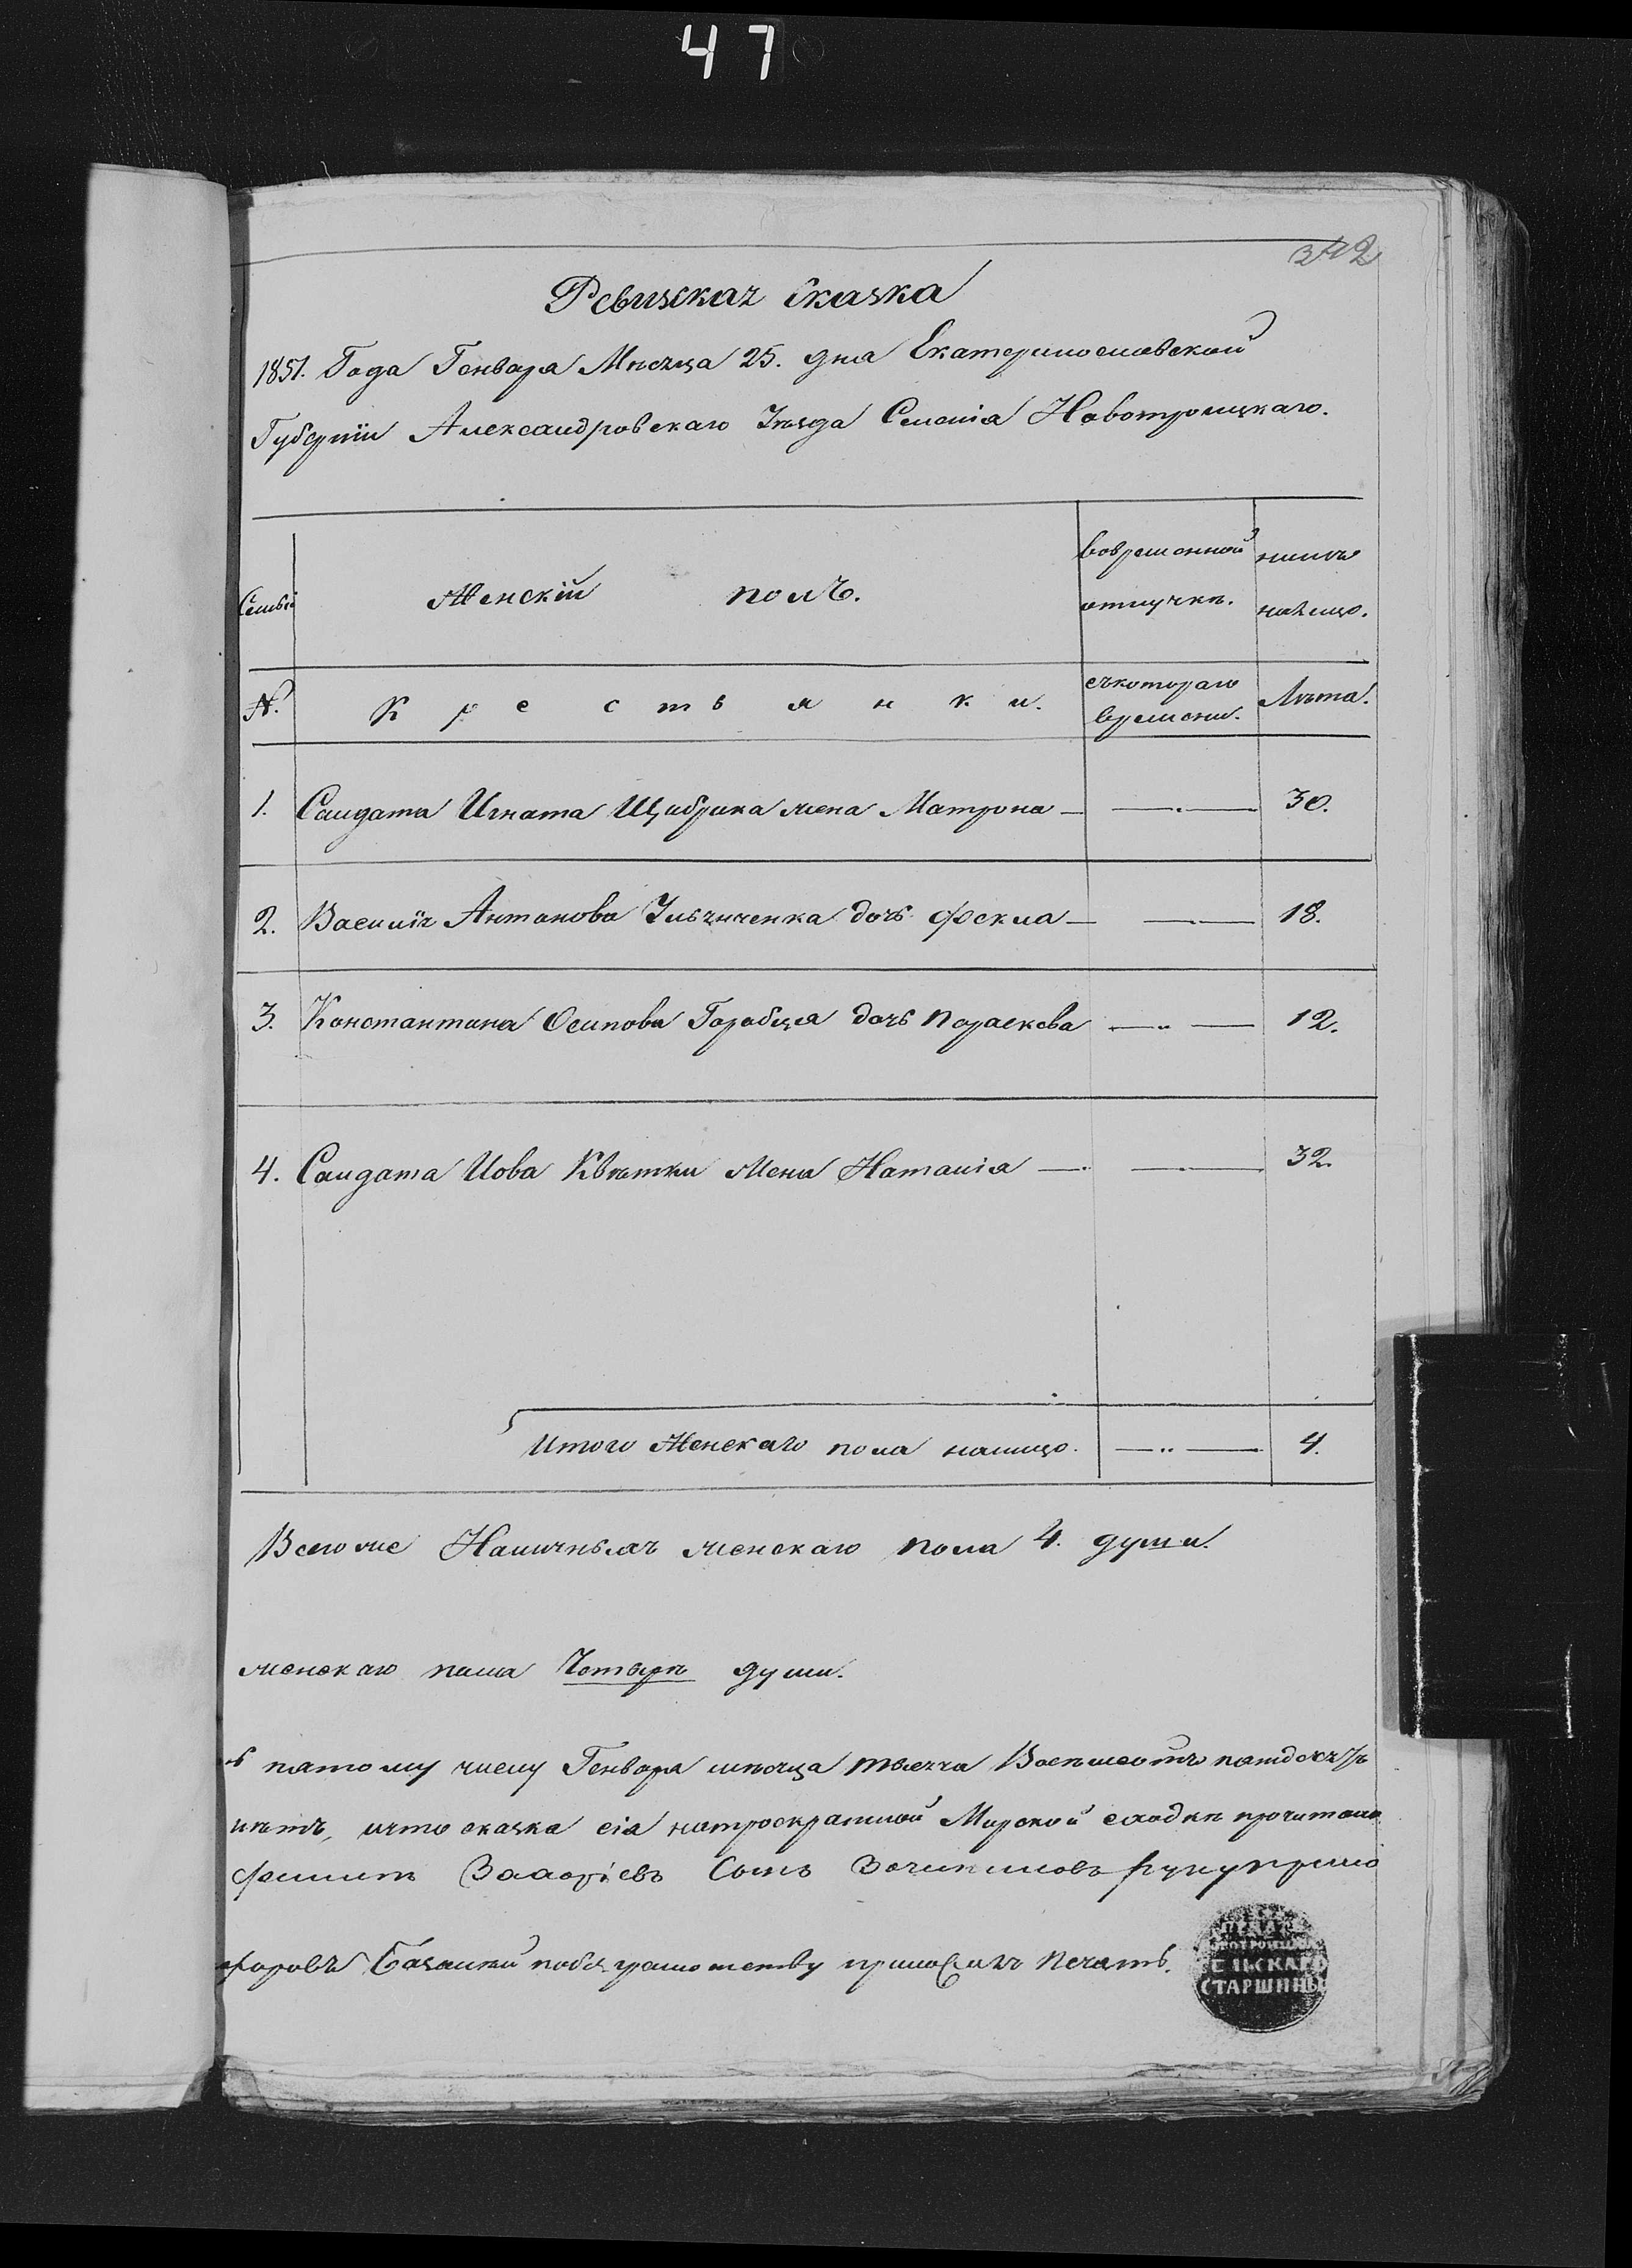 47
342
Ревизская Сказка
1851. Года Генваря Мѣсяца 25. дня Екатеринославской
Губерніи Александровскаго Уѣзда Селенія Новотроицкаго.
Семьи Женскій полъ. вовременной отлучкѣ. нынѣ налицо.
№. Крестьянки. съкотораго времени. Лѣта.
1. Салдата Игната Щибрика жена Матрона — —.— 30.
2. Василія Антонова Ильяшенка дочь Фекла — —..— 18.
3. Константина Осипова Горобца дочь Параскева —..— 12.
4. Салдата Иова Квѣтки Жена Наталія — —..— 32.
Итого Женскаго пола налицо. —..— 4.
Всегоже Наличныхъ женскаго пола 4. души.
женскаго пола Четырѣ души.
пятому числу Генваря мѣсяца тысяча Восемьсотъ пятдесятъ
что сказка сія натроекратной Мирской сходкѣ прочитана
Сынъ
грамотству приложилъ Печать.
СЕЛЬСКАГО
СТАРШИНЫ